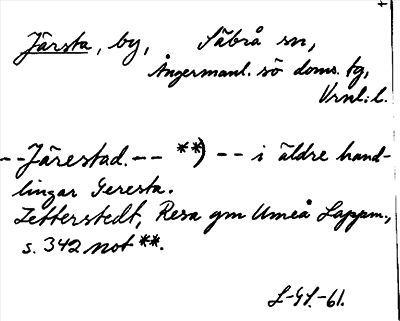 Järsta, by, Säbrå sn,
Ångermanl. sö doms. tg,
Vrnl. l.
--Järestad.-- **) -- i äldre hand-
lingar Geresta.
Zetterstedt, Resa gm Umeå Lappm.,
s. 342 not **.